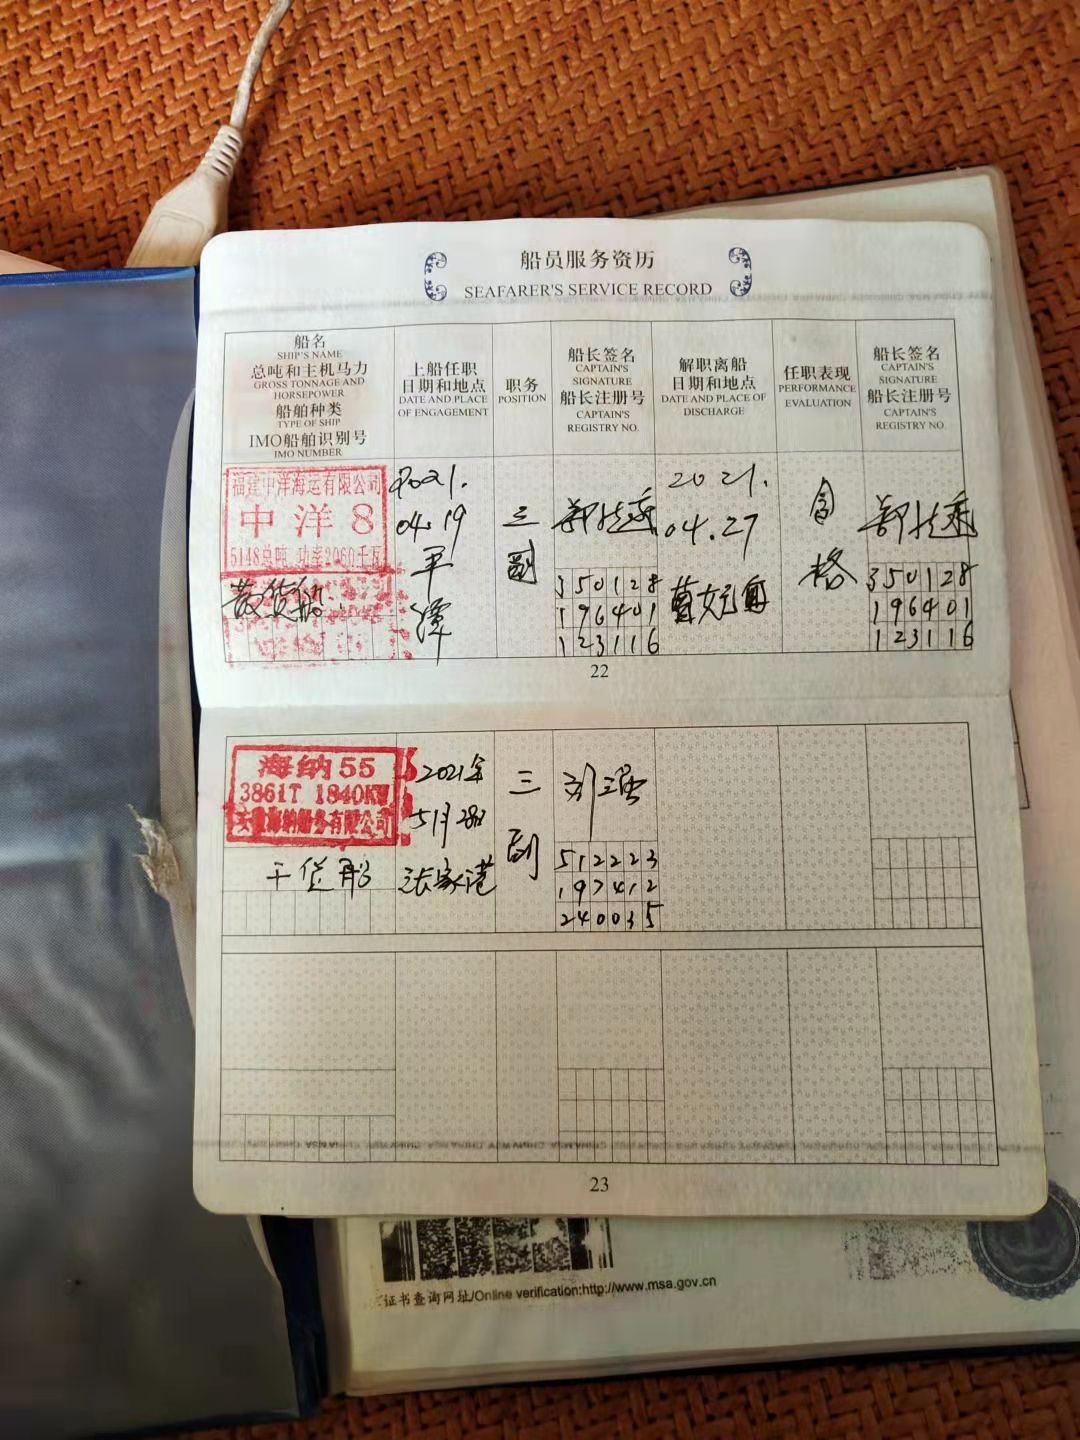 船员服务资历
SEAFARER'S SERVICE RECORD
船名
SHIP'S NAME
总吨和主机马力
GROSS TONNAGE AND
HORSEPOWER
船舶种类
TYPE OF SHIP
IMO船舶识别号
IMO NUMBER
上船任职
日期和地点
DATE AND PLACE
OF ENGAGEMENT
职务
POSITION
船长签名
CAPTAIN'S
SIGNATURE
船长注册号
CAPTAIN'S
REGISTRY NO.
解职离船
日期和地点
DATE AND PLACE OF
DISCHARGE
任职表现
PERFORMANCE
EVALUATION
船长签名
CAPTAIN'S
SIGNATURE
船长注册号
CAPTAIN'S
REGISTRY NO.
福建中洋海运有限公司
中洋8
5148总吨 功率2060千瓦
散货船
2021.
04.19
平
潭
三
副
350128
196401
123116
2021.
04.27
合
格
350128
196401
123116
22
海纳55
3861T 1840KW
安徽海纳船务有限公司
干货船
2021年
5月28日
张家港
三
副
512223
197412
240035
23
证书查询网址/Online verification:http://www.msa.gov.cn